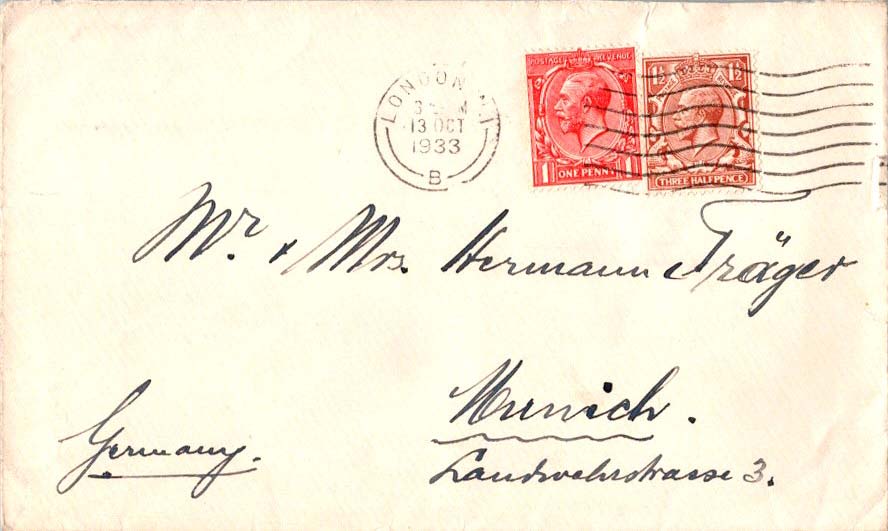 LONDON
13 OCT
1933
B
POSTAGE REVENUE
1 ONE PENNY 1
1½ 1½
THREE HALFPENCE
Mr. + Mrs. Hermann Träger
Munich.
Landwehrstrasse 3.
Germany.